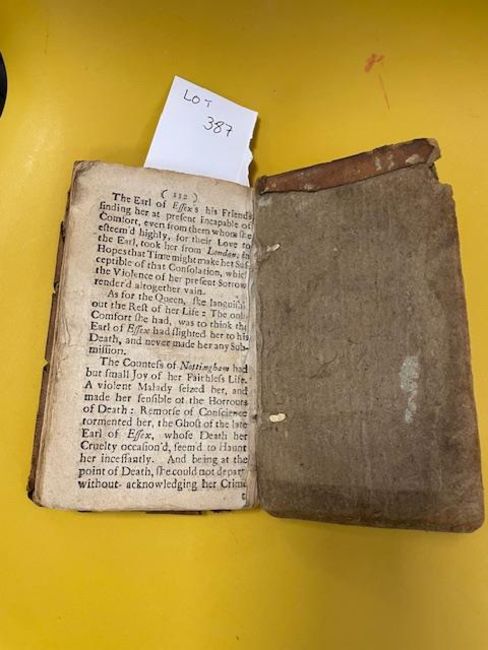 LOT
387
( 112 )
The Earl of Eſſex's his Friends
finding her at preſent incapable of
Comfort, even from them whom ſhe
eſteem'd highly, for their Love to
the Earl, took her from London, in
Hopes that Time might make her Suſ-
ceptible of that Conſolation, which
the Violence of her preſent Sorrow
render'd altogether vain.
As for the Queen, ſhe languiſh'd
out the Reſt of her Life: The only
Comfort ſhe had, was to think the
Earl of Eſſex had ſlighted her to his
Death, and never made her any Sub-
miſſion.
The Counteſs of Nottingham had
but ſmall Joy of her Faithleſs Life.
A violent Malady ſeized her, and
made her ſenſible of the Horrours
of Death: Remorſe of Conſcience
tormented her, the Ghoſt of the late
Earl of Eſſex, whoſe Death her
Cruelty occaſion'd, ſeem'd to Haunt
her inceſſantly. And being at the
point of Death, ſhe could not depart
without acknowledging her Crime